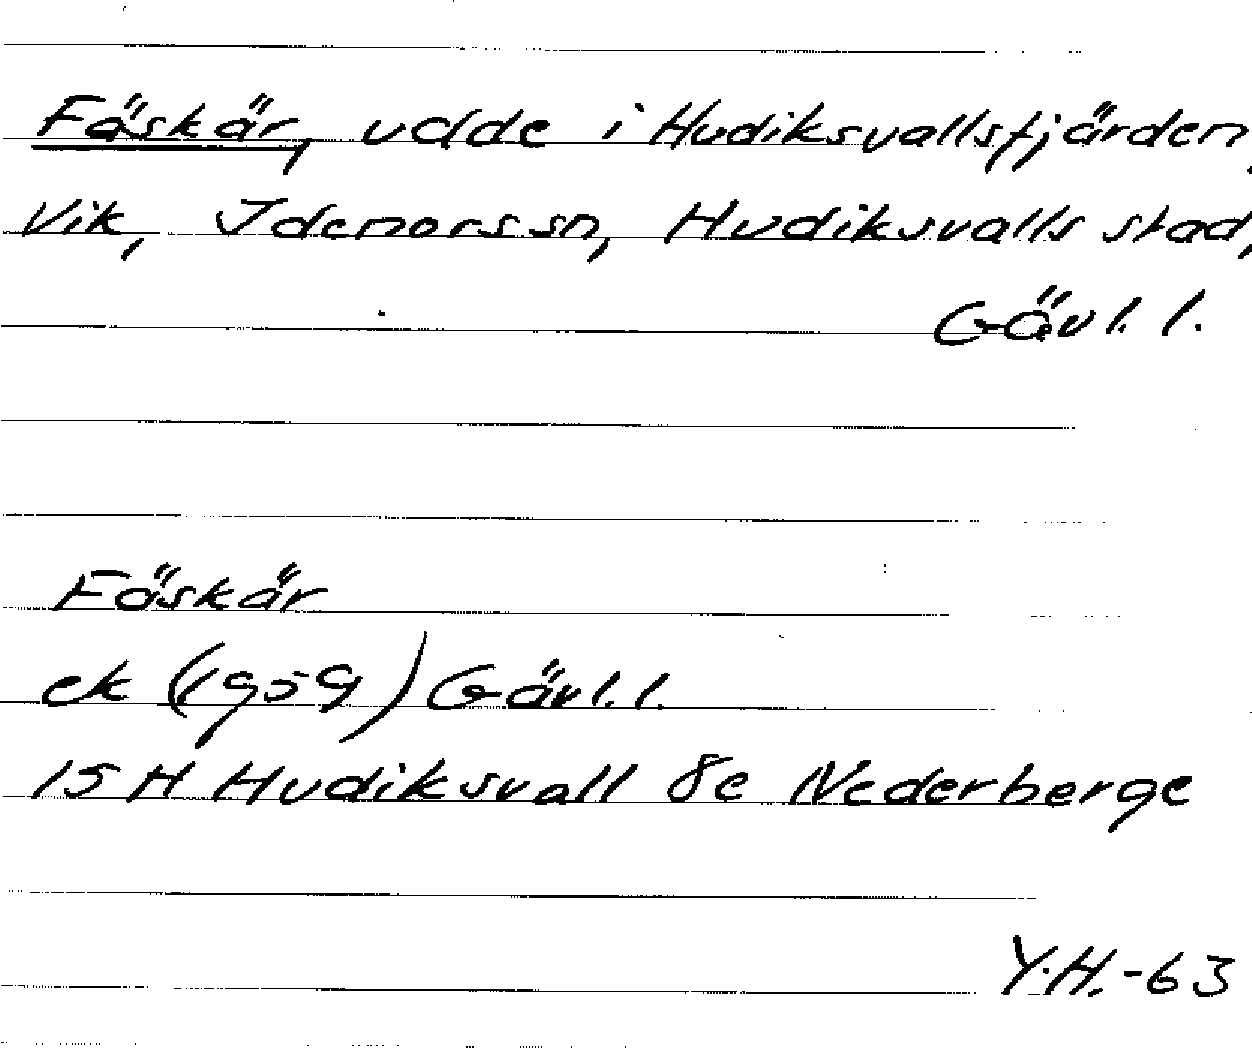 Fäskär, udde i Hudiksvallsfjärden,
Vik, Idenorssn, Hudiksvalls stad,
Gävl. l.
Fäskär
ek (1959) Gävl. l.
15 H Hudiksvall 8e Nederberge
Y.H.-63